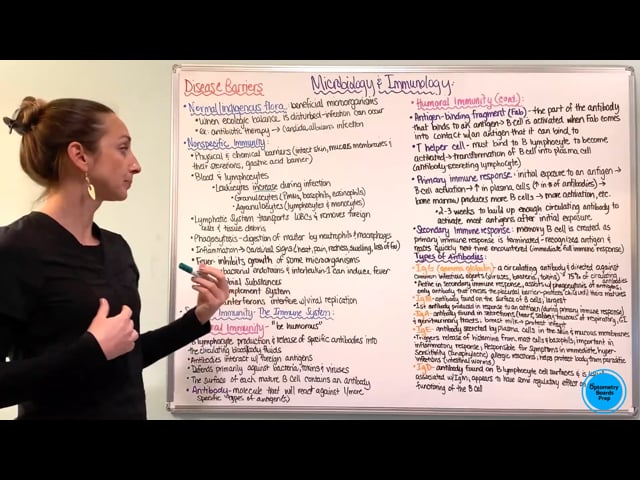 Microbiology & Immunology:
Disease Barriers
• Normal/Indigenous Flora: beneficial microorganisms
• When ecologic balance is disturbed-infection can occur
• ex: antibiotic therapy → candida albicans infection
Nonspecific Immunity:
• Physical & chemical barriers (intact skin, mucus membranes &
their secretions, gastric acid barrier)
• Blood & lymphocytes
• Leukocytes increase during infection
• Granulocytes (PMNs, basophils, eosinophils)
• Agranulocytes (lymphocytes & monocytes)
• Lymphatic System transports WBCs & removes foreign
cells & tissue debris
• Phagocytosis - digestion of matter by neutrophils & macrophages
• Inflammation → Cardinal signs (heat, pain, redness, swelling, loss of fxn)
• Fever - inhibits growth of some microorganisms
bacterial endotoxins & interleukin-1 can induce fever
Substances
Complement System
interferons interfere w/ viral replication
Immunity: The Immune System:
Immunity: "be humorus"
B lymphocyte production & release of specific antibodies into
the circulating blood/body fluids
• Antibodies interact w/ foreign antigens
• Defends primarily against bacteria, toxins & viruses
• The surface of each mature B Cell contains an antibody
• Antibody - molecule that will react against 1/more
specific types of antigen(s)
Humoral Immunity (cont.):
• Antigen-binding fragment (Fab) - the part of the antibody
that binds to an antigen → B-cell is activated when Fab comes
into contact w/ an antigen that it can bind to
• T helper cell - must bind to B lymphocyte to become
activated → transformation of B cell into plasma cell
(antibody secreting lymphocyte)
• Primary immune response: initial exposure to an antigen → B-
cell activation → ↑ in plasma cells (↑ in # of antibodies) →
bone marrow produces more B cells → more activation, etc.
• 2-3 weeks to build up enough circulating antibody to
activate most antigens after initial exposure
• Secondary immune response: memory B cell is created as
primary immune response is terminated - recognizes antigen &
reacts quickly next time encountered (immediate full immune response)
Types of Antibodies:
• IgG (gamma globulin) - a circulating antibody & directed against
common infectious agents (viruses, bacteria, toxins) * 75% of circulating antibodies
• Active in secondary immune response, assists w/ phagocytosis of antigens
only antibody that crosses the placental barrier - protects child until theirs matures
• IgM - antibody found on the surface of B cells, largest
• 1st antibody produced in response to an antigen (during primary immune response)
• IgA - antibody found in secretions (tears, saliva, & mucous of respiratory, GI
& genitourinary tracts, breast milk → protect infant
• IgE - antibody secreted by plasma cells in the skin & mucous membranes
• Triggers release of histamine from mast cells & basophils, important in
inflammatory response; Responsible for symptoms in immediate, hyper-
sensitivity (anaphylactic) allergic reactions, helps protect body from parasitic
infections (intestinal worms)
• IgD - antibody found on B lymphocyte cell surfaces & is
associated w/ IgM, appears to have some regulatory effect on
functioning of the B Cell
Optometry
Boards
Prep